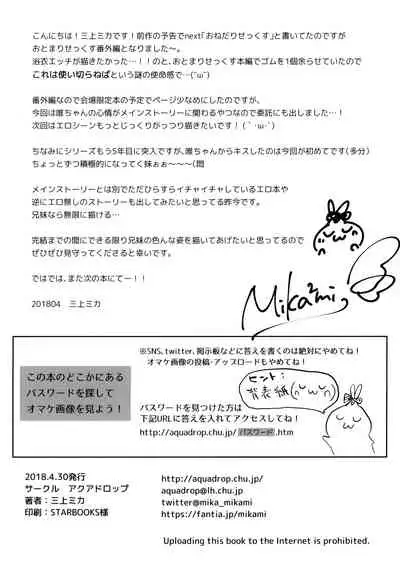 こんにちは!三上ミカです!前作の予告でnext「おねだりせっくす」と書いてたのですが
おとまりせっくす番外編となりました～。
浴衣エッチが描きたかった…!!のと、おとまりせっくす本編でゴムを1個余らせていたので
これは使い切らねばという謎の使命感で…(˘ω˘)
番外編なので会場限定本の予定でページ少なめにしたのですが、
今回は唯ちゃんの心情がメインストーリーに関わるやつなので委託にも出しました…!
次回はエロシーンもっとじっくりがっつり描きたいです!(｀･ω･´)
ちなみにシリーズもう5年目に突入ですが、唯ちゃんからキスしたのは今回が初めてです(多分)
ちょっとずつ積極的になってく妹ぉぉ～～～(悶
メインストーリーとは別でただひらすらイチャイチャしているエロ本や
逆にエロ無しのストーリーも出してみたいと思ってる昨今です。
兄妹なら無限に描ける…
完結までの間にできる限り兄妹の色んな姿を描いてあげたいと思ってるので
ぜひぜひ見守ってくださると幸いです。
ではでは、また次の本にてー!!
201804　三上ミカ
Mika2mi
この本のどこかにある
パスワードを探して
オマケ画像を見よう!
※SNS、twitter、掲示板などに答えを書くのは絶対にやめてね!
オマケ画像の投稿・アップロードもやめてね!
ヒント:
背表紙
パスワードを見つけた方は
下記URLに答えを入れてアクセスしてね!
http://aquadrop.chu.jp/パスワード.htm
2018.4.30発行
サークル　アクアドロップ
著者:三上ミカ
印刷:STARBOOKS様
http://aquadrop.chu.jp/
aquadrop@lh.chu.jp
twitter@mika_mikami
https://fantia.jp/mikami
Uploading this book to the Internet is prohibited.